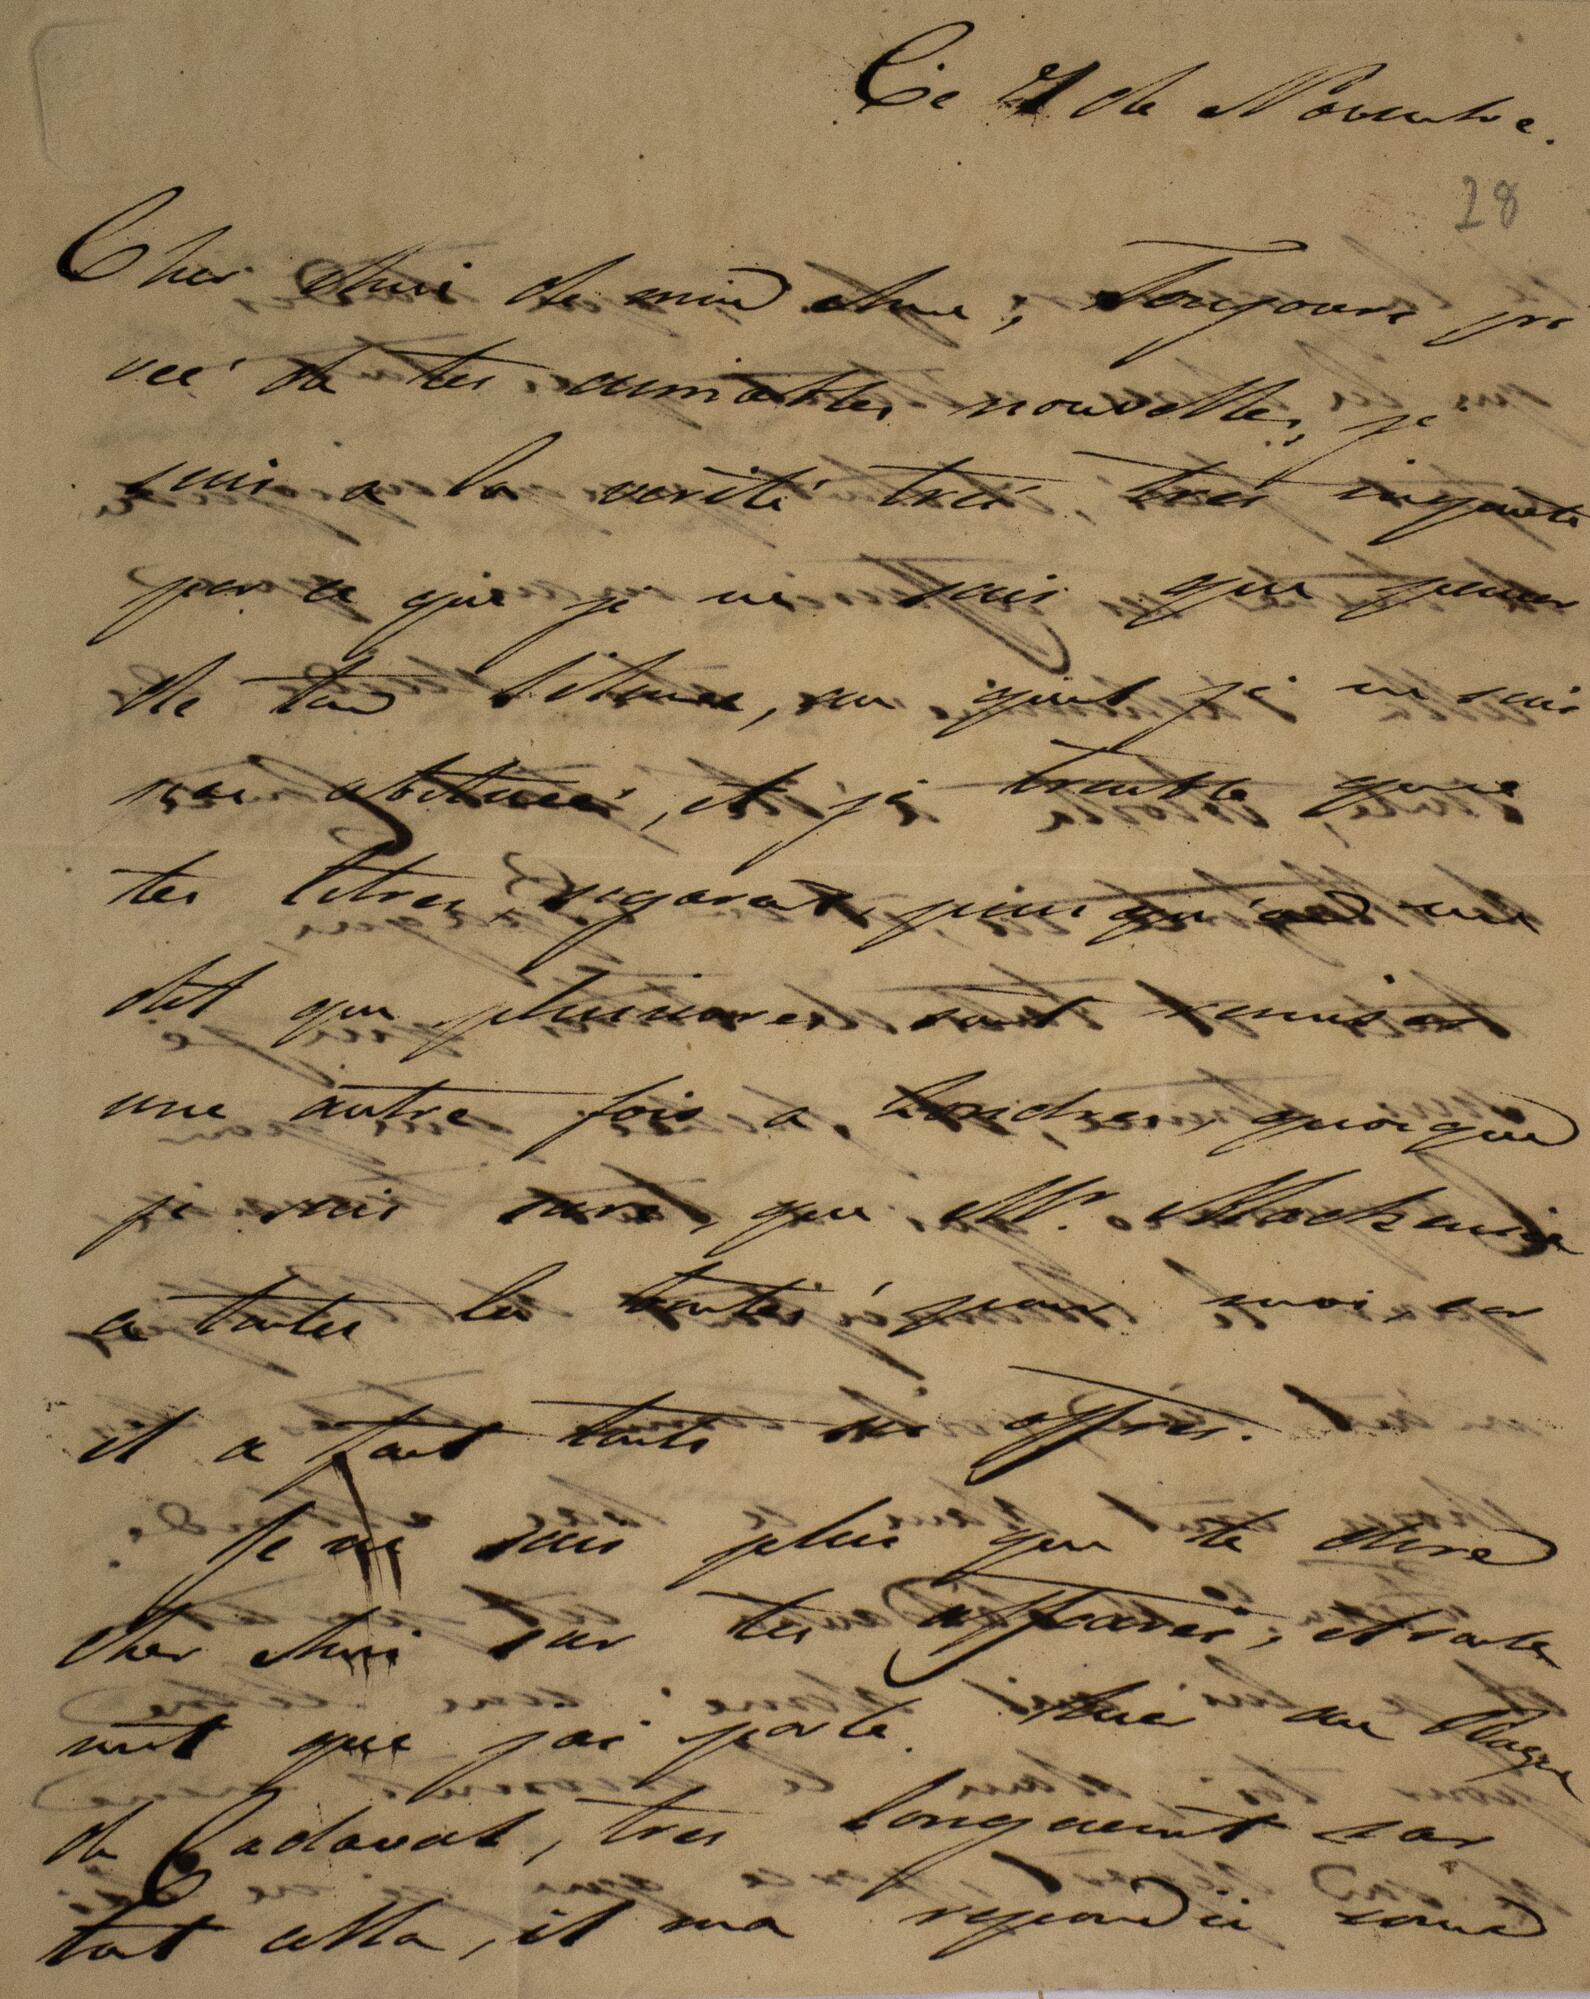 Ce 21 de Novembre.
28
Cher Ami de mon Ame; Toujours pri
veé de tes aimables nouvelles, je
suis a la verité tres tres inquiete
par ce que je ne sais que penser
de ton silence, au quel je ne suis
pas abituée, et je tremble que
tes letres, segarent, puis qu'on me
dit que plusieures sont remises
une autre fois a Londres, quoique
je suis sure, que Mr. Mackenzie
a toutes les bontés pour moi, car
il a fait touts ses offres.
Je ne sais plus que te dire
cher Ami sur tes affaires, et seule
ment que jai parle hier au Duque
de Cadaval, tres longuement sur
tout cella, il ma repondu